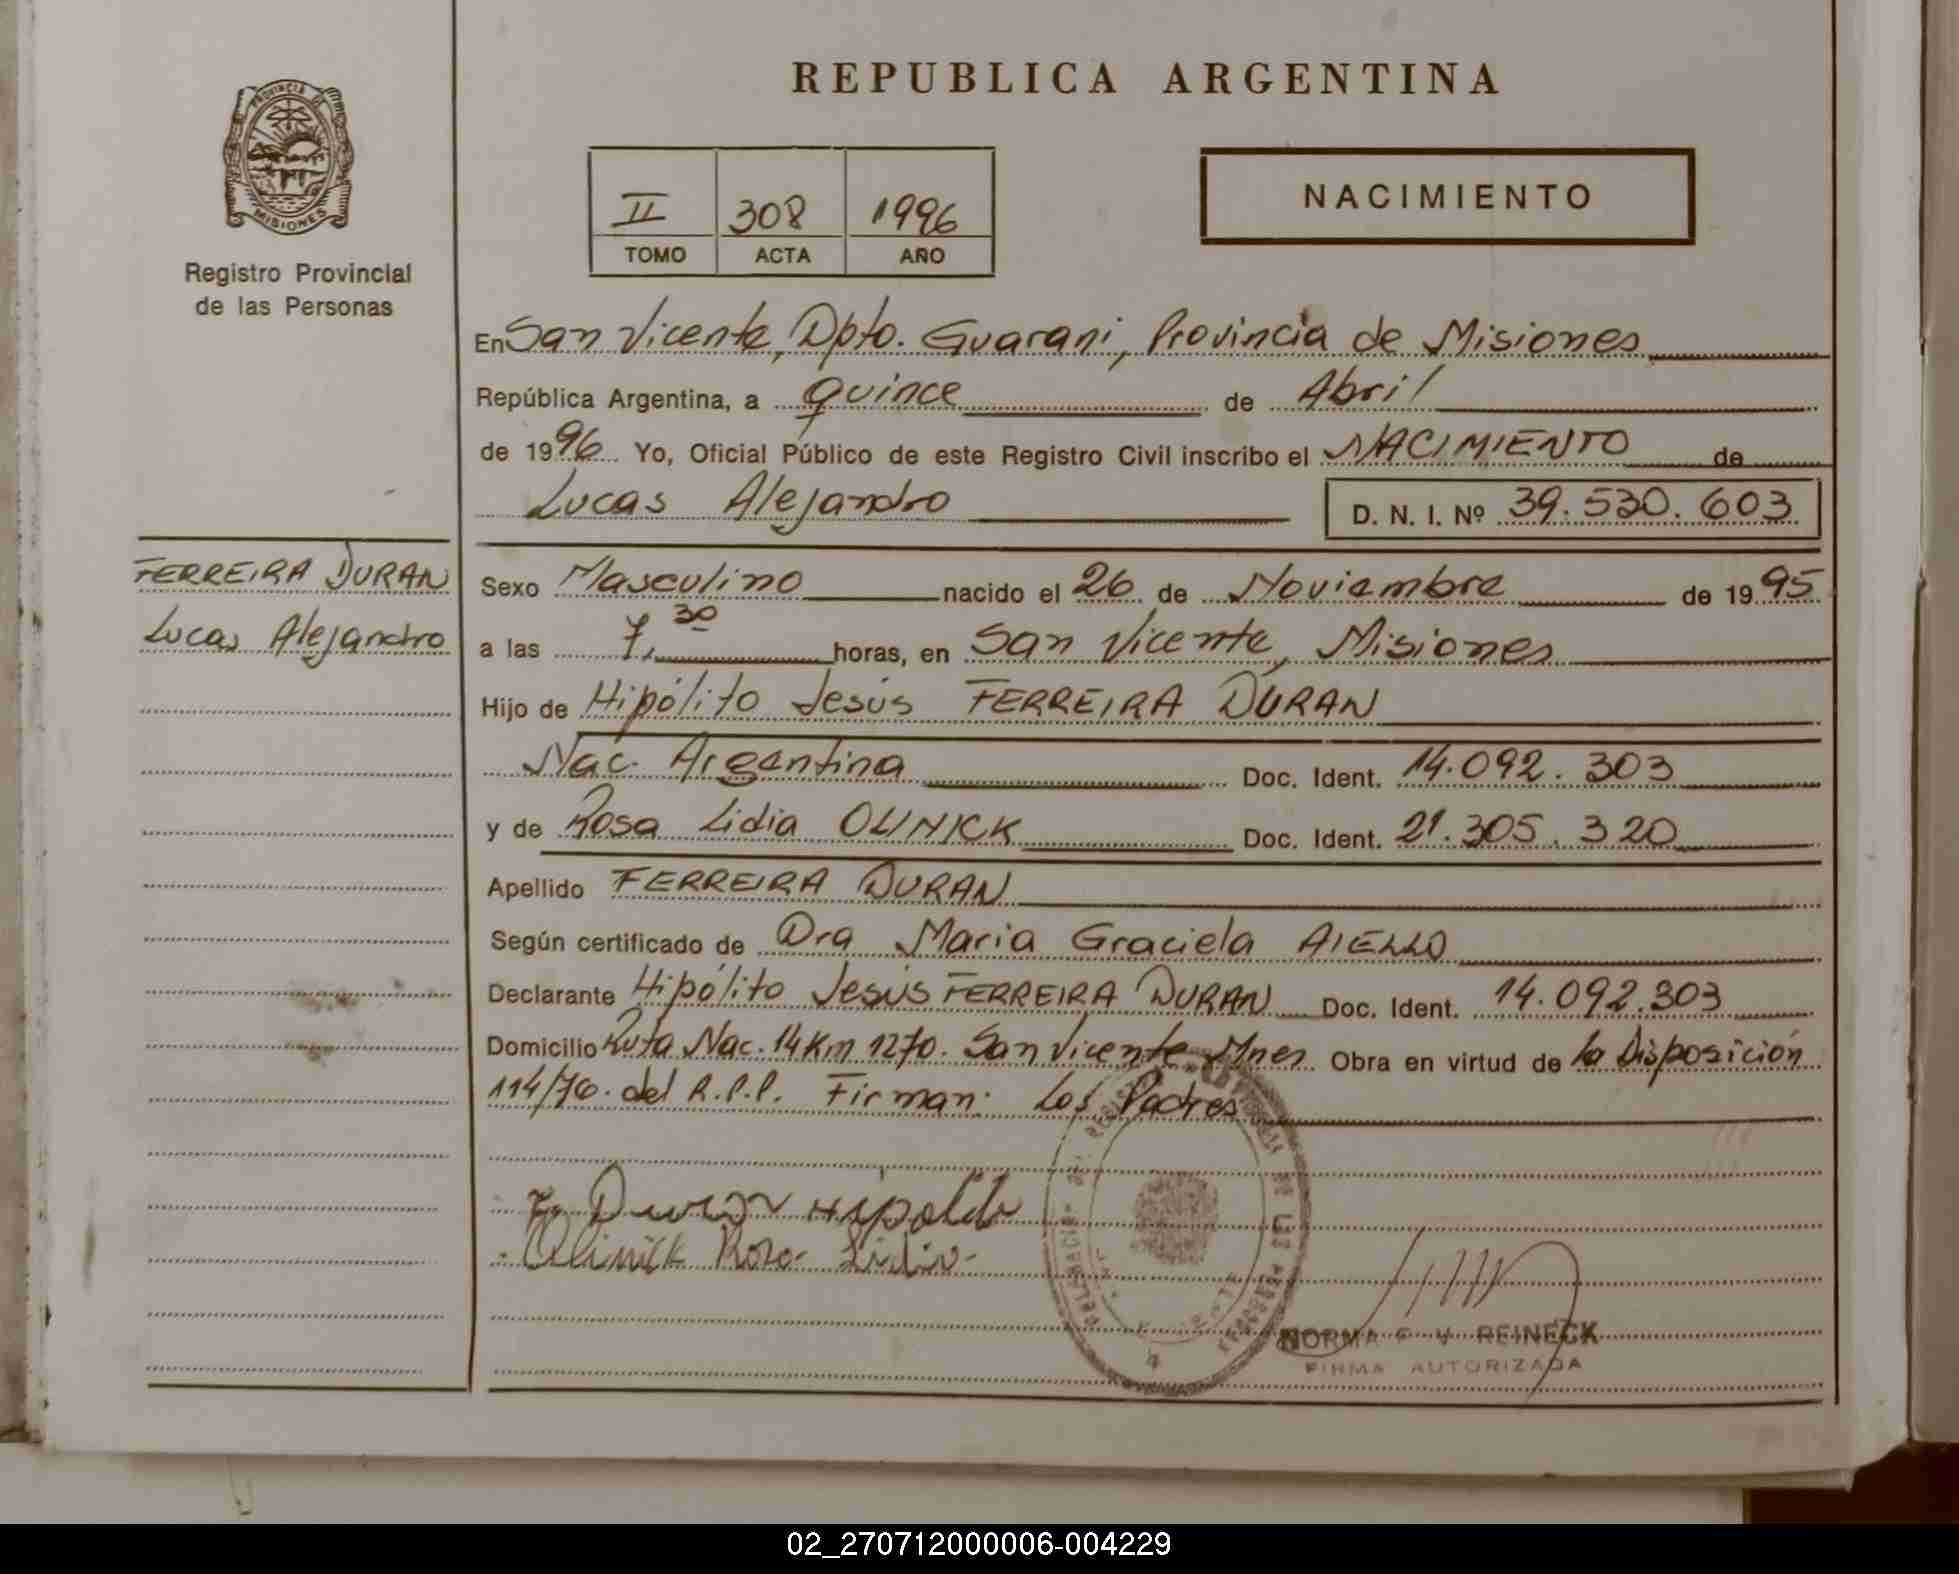 REPUBLICA ARGENTINA
PROVINCIA DE MISIONES
Registro Provincial
de las Personas
II 308 1996
TOMO ACTA AÑO
NACIMIENTO
En San Vicente, Dpto. Guarani, Provincia de Misiones
República Argentina, a quince de Abril
de 1996 Yo, Oficial Público de este Registro Civil inscribo el NACIMIENTO de
Lucas Alejandro D. N. I. Nº 39.530.603
FERREIRA DURAN
Lucas Alejandro
Sexo Masculino nacido el 26 de Noviembre de 1995
a las 7,30 horas, en San Vicente, Misiones
Hijo de Hipólito Jesús FERREIRA DURAN
Nac. Argentina Doc. Ident. 14.092.303
y de Rosa Lidia OLINICK Doc. Ident. 21.305.320
Apellido FERREIRA DURAN
Según certificado de Dra Maria Graciela AIELLO
Declarante Hipólito Jesús FERREIRA DURAN Doc. Ident. 14.092.303
Domicilio Ruta Nac. 14 Km 1270. San Vicente Mnes Obra en virtud de la Disposición
114/76. del R.P.P. Firman: Los Padres
Duran Hipolito
Olinick Rosa Lidia
NORMA F. V. REINECK
FIRMA AUTORIZADA
02_270712000006-004229